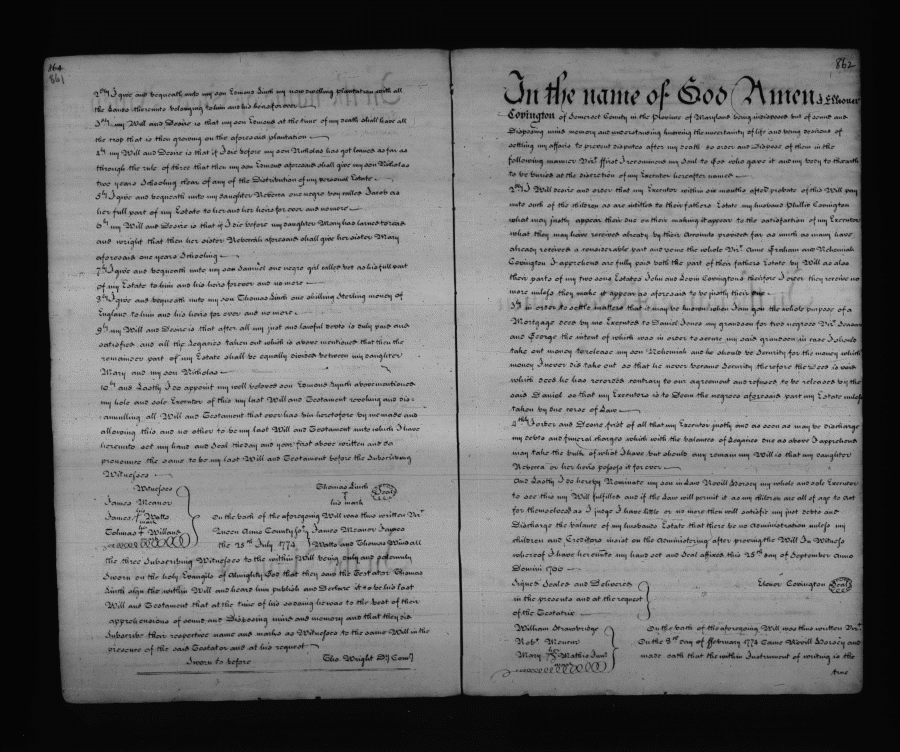 861
2ndly I give and bequeath unto my son Edmond Linth my now dwelling plantation with all
the Lands thereunto belonging to him and his heirs for ever
3dly my Will and Desire is that my son Edmond at the time of my death shall have all
the crop that is then growing on the aforesaid plantation
4th my Will and Desire is that if I die before my son Nicholas has got learned as far as
through the rule of three that then my son Edmond aforesaid shall give my son Nicholas
two years Schooling clear of any of the Distribution of my personal Estate
5th I give and bequeath unto my daughter Rebecca one negro boy called Jacob as
her full part of my Estate to her and her heirs for ever and no more
6th my Will and Desire is that if I die before my daughter Mary has larned to read
and wright that then her sister Rebecah aforesaid shall give her sister Mary
aforesaid one years Schooling
7th I give and bequeath unto my son Samuel one negro girl called as his full part
of my Estate to him and his heirs forever and no more
8th I give and bequeath unto my son Thomas Linth one shilling Sterling money of
England to him and his heirs for ever and no more
9th my Will and Desire is that after all my just and lawful debts is duly paid and
satisfied and all the Legacies taken out which is above mentioned that then the
remainder part of my Estate shall be equally divided between my daughter
Mary and my son Nicholas
10th and Lastly I do appoint my well beloved son Edmond above mentioned
my hole and sole Executor of this my last Will and Testament revoking and dis-
annulling all Will and Testament that ever has bin heretofore by me made and
allowing this and no other to be my last Will and Testament unto which I have
hereunto set my hand and Seal the day and year first above written and do
pronounce the same to be my last Will and Testament before the Subscribing
Witnesses
Witnesses
Thomas Linth Seal
his mark
James Meanor
James his mark Watts
Tobmas Willand
On the back of the aforegoing Will was thus written Vizt
Queen Anns County Sst James Meanor James
the 28th July 1774 Watts and Thomas Windall
the three Subscribing Witnesses to the within Will being duly and solemnly
Sworn on the holy Evangils of Almighty God that they saw the Testator Thomas
Linth sign the within Will and heard him publish and Declare it to be his last
Will and Testament that at the time of his so doing he was to the best of their
apprehensions of sound and Disposing mind and memory and that they did
Subscribe their respective name and marks as Witnesses to the same Will in the
presence of the said Testator and at his request
Sworn to before Tho Wright Dy Comy
862
In the name of God Amen I Eleonor
Covington of Somerset County in the Province of Maryland being indisposed but of sound and
Disposing mind memory and understanding knowing the uncertainty of life and being desirous of
settling my affairs to prevent disputes after my death do order and dispose of them in the
following manner Vizt ffirst I recommend my Soul to God who gave it and my body to the earth
to be buried at the discretion of my Executor hereafter named
2ndly I Will desire and order that my Executor within six months after probate of this Will pay
unto each of the children as are intitled to their fathers Estate my husband Phillip Covington
what may justly appear due on their making it appear to the satisfaction of my Executor
what they may have received already by their Accounts provided for as much as many have
already received a considerable part and some the whole Vizt Anne Graham and Nehemiah
Covington I apprehend are fully paid both the part of their fathers Estate by Will as also
their parts of my two sons Estates John and Levin Covingtons therefore I order they receive no
more unless they make it appear as aforesaid to be justly their due
3dly in order to settle matters that it may be known when I am gon the whole purpose of a
Mortgage deed by me Executed to Daniel Jones my grandson for two negroes Vizt
and George the intent of which was in order to secure my said grandson in case I should
take out money to release my son Nehemiah and he should be Security for the money which
money I never did take out so that he never became Security therefore the deed is void
which deed he has recorded contrary to our agreement and refused to be released by the
said Daniel so that my Executors is to Deem the negroes aforesaid part my Estate unless
taken by due corse of Law
4thly I order and Desire first of all that my Executor justly and as soon as may be discharge
my debts and funeral charges which with the ballances of Legacies due as above I apprehend
may take the bulk of what I have but should any remain my Will is that my daughter
Rebecca or her heirs posess it for ever
And Lastly I do hereby Nominate my son in Law Revill Horsey my whole and sole Executor
to see this my Will fulfilled and if the Law will permit it as my children are all of age to Act
for themselves as I judge I have little or no more then will satisfie my just debts and
Discharge the balance of my husbands Estate that there be no Administration unless my
children and Creditors insist on the Administering after proving the Will In Witness
whereof I have hereunto my hand set and Seal affixed this 25th day of September Anno
Domini
Signed Sealed and Delivered Elonor Covington Seal
in the presents and at the request
of the Testatrix
William Strawbridge
Robt
Mary her mark Mathis Junr
On the back of the aforegoing Will was thus written Vizt
On the 3d day of ffebruary 1774 Came Revill Horsey and
made oath that the within Instrument of writing is the
true